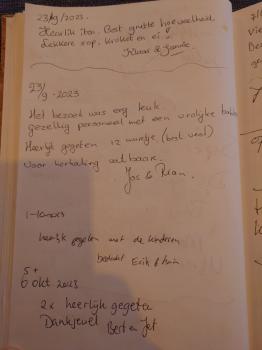 23/9/2023.
Heerlijk eten. Best grote hoeveelheid.
Lekkere sop, kroket en ei
Klaas & Sannie.
23/9-2023
Het bezoek was erg leuk.
gezellig personeel met een vrolijke
Heerlijk gegeten 12 uurtje (best veel)
Voor herhaling vatbaar.
Jos & Rian.
heerlijk gegeten met de kinderen
bedankt Erik &
5 +
6 okt 2023
2x heerlijk gegeten
Dankjewel Bert en Jet